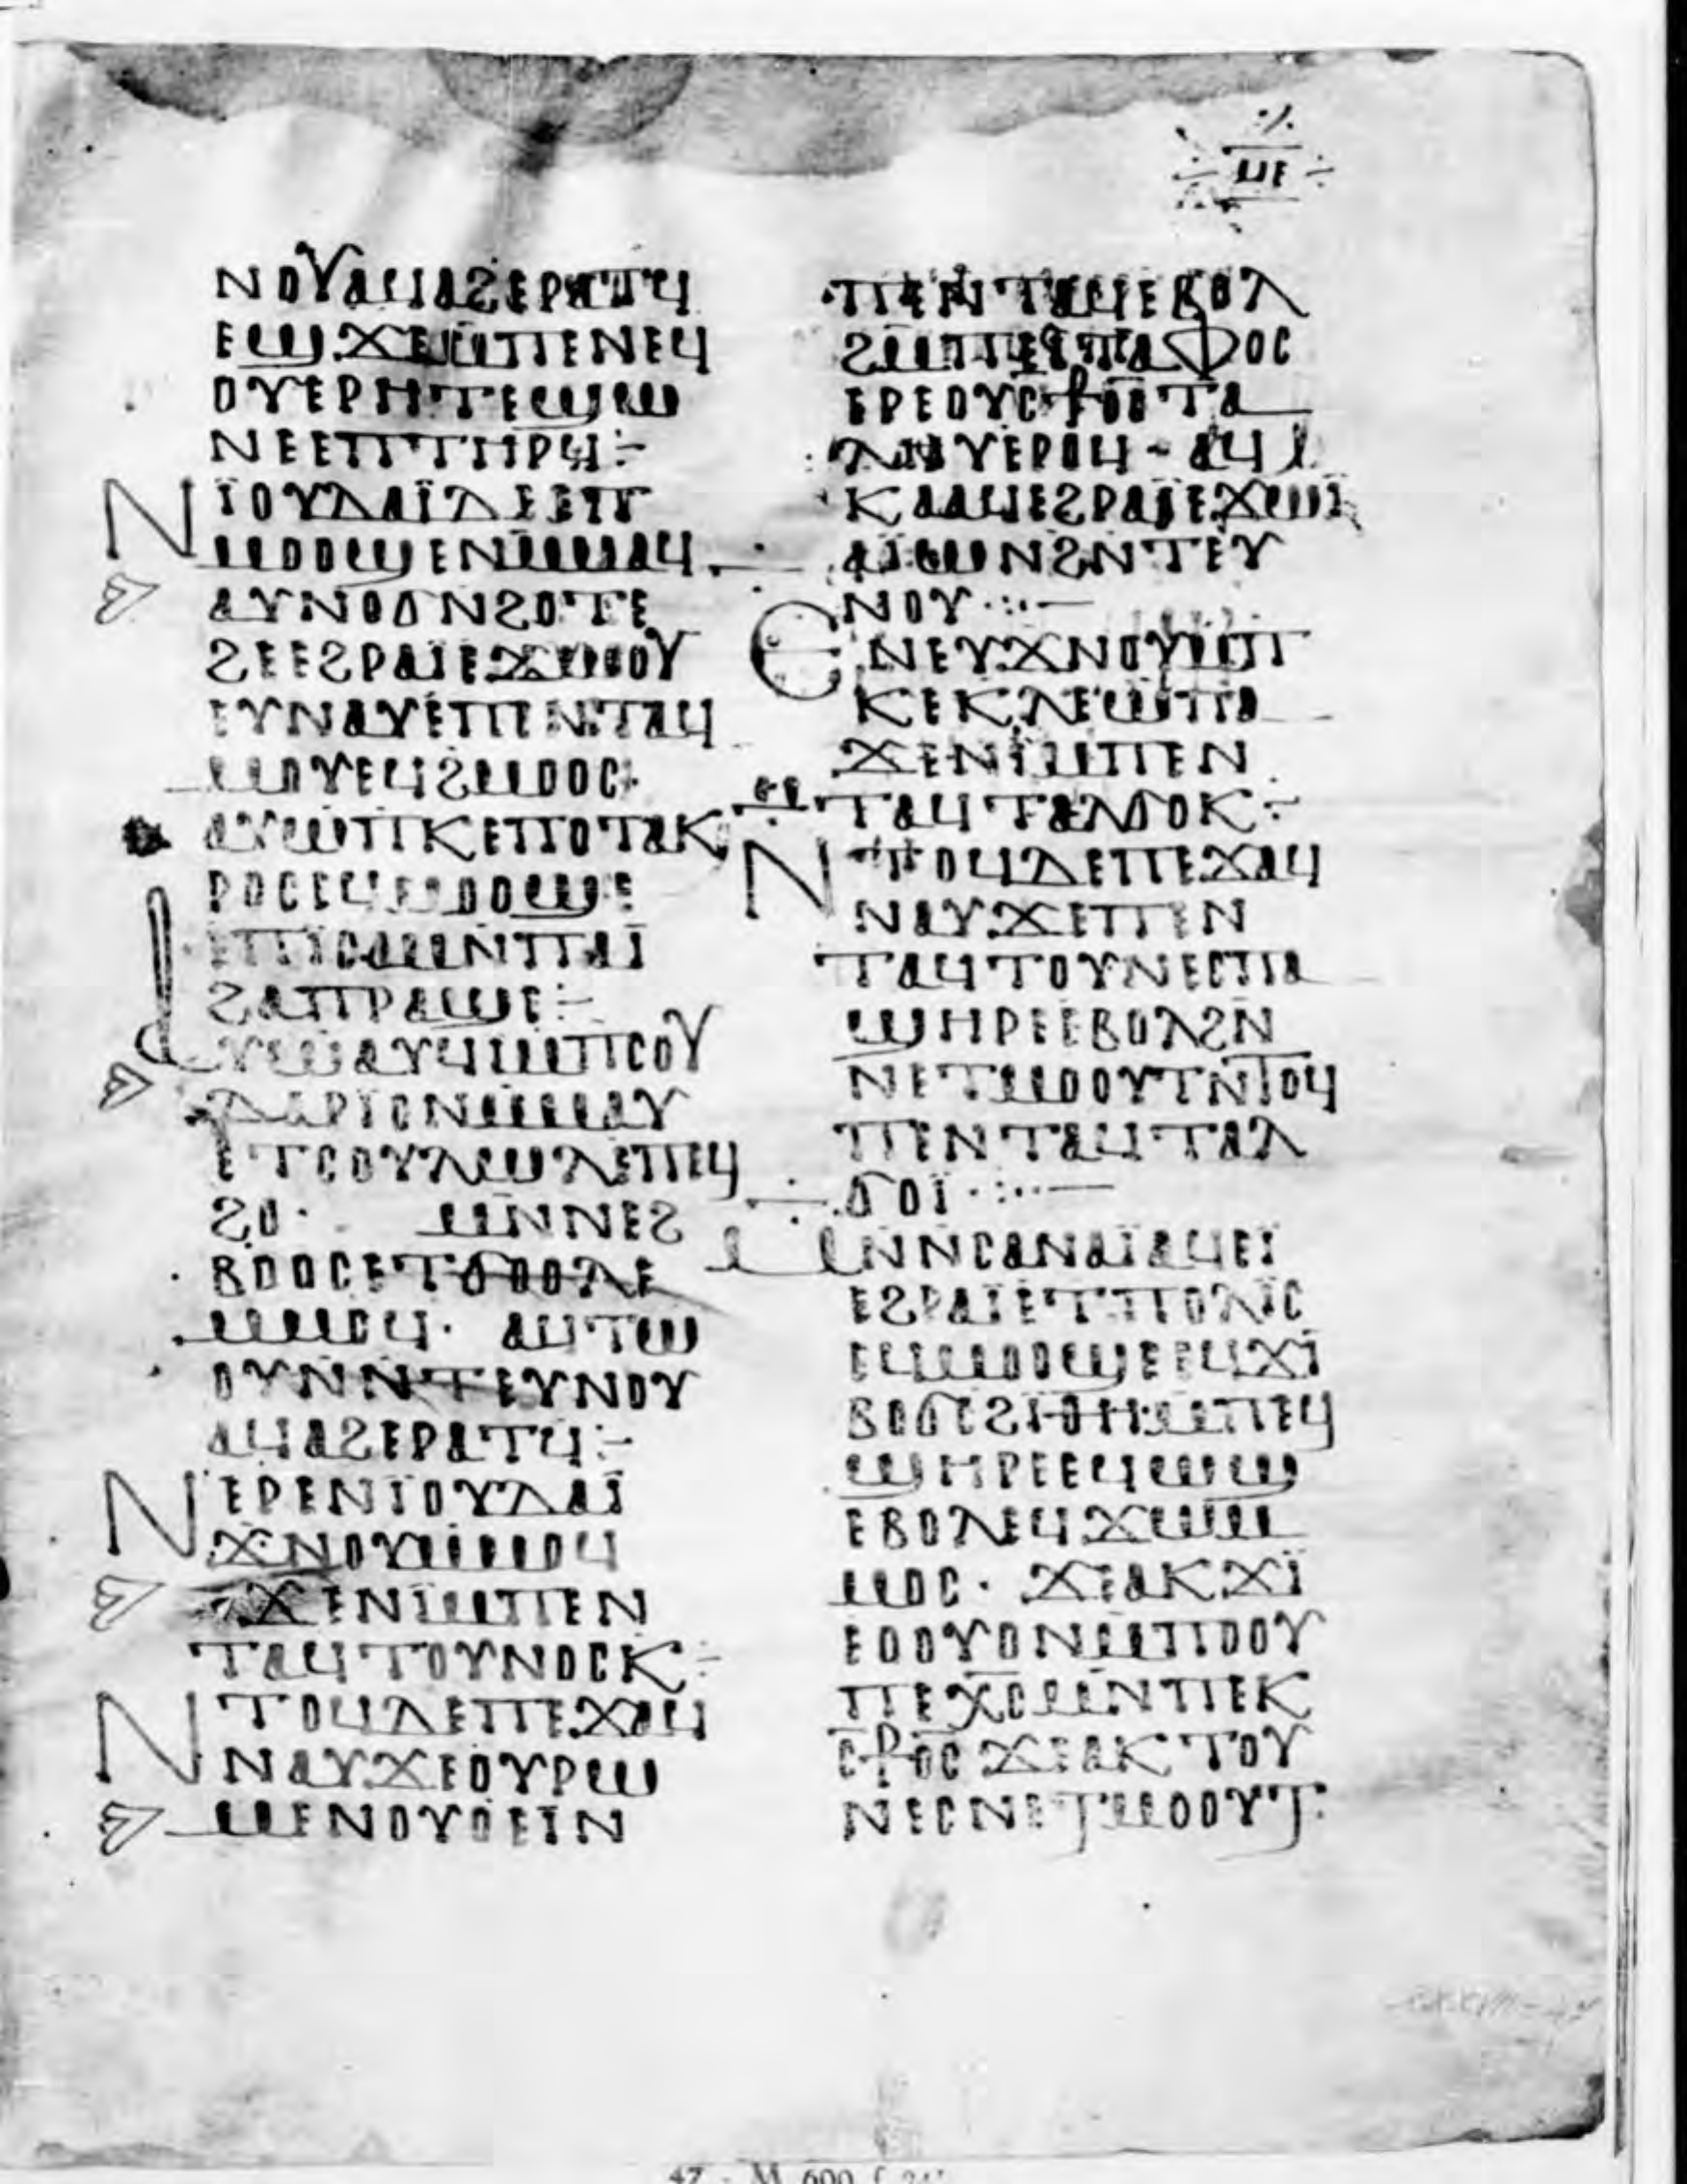 ⲙⲉ
ⲛⲟⲩⲁϥⲁϩⲉⲣⲁⲧϥ
ⲉϣϫⲉⲙⲡⲉⲛⲉϥ
ⲟⲩⲉⲣⲏⲧⲉϣⲱ
ⲛⲉⲉⲡⲧⲏⲣϥ:-
ⲛⲓ̈ⲟⲩⲇⲁⲓ̈ⲇⲉⲉⲧ
ⲙⲟⲟϣⲉⲛⲙⲙⲁϥ
ⲁⲩⲛⲟϭⲛϩⲟⲧⲉ
ϩⲉⲉϩⲣⲁⲓ̈ⲉϫⲱⲟⲩ
ⲉⲩⲛⲁⲩⲉⲡⲉⲛⲧⲁϥ
ⲙⲟⲩⲉϥϩⲙⲟⲟⲥ·
ⲁⲩⲱⲡⲕⲉⲡⲟⲧⲁⲕ
ⲣⲟⲥⲉϥⲙⲟⲟϣⲉ
ⲉⲡⲓⲥⲁⲙⲛⲡⲁⲓ̈
ϩⲁⲡⲣⲁϣⲉ:-
ⲁⲩⲱⲁⲩϥⲓⲙⲡⲥⲟⲩ
ⲇⲁⲣⲓⲟⲛⲙⲙⲁⲩ
ⲉⲧⲥⲟⲩⲗⲱⲗⲉⲡⲉϥ
ϩⲟ· ⲙⲛⲛⲉϩ
ⲃⲟⲟⲥⲉⲧϭⲟⲟⲗⲉ
ⲙⲙⲟϥ· ⲁϥⲧⲱ
ⲟⲩⲛⲛⲧⲉⲩⲛⲟⲩ
ⲁϥⲁϩⲉⲣⲁⲧϥ:-
ⲛⲉⲣⲉⲛⲓ̈ⲟⲩⲇⲁⲓ̈
ϫⲛⲟⲩⲙⲙⲟϥ
ϫⲉⲛⲓⲙⲡⲉⲛ
ⲧⲁϥⲧⲟⲩⲛⲟⲥⲕ:-
ⲛⲧⲟϥⲇⲉⲡⲉϫⲁϥ
ⲛⲁⲩϫⲉⲟⲩⲣⲱ
ⲙⲉⲛⲟⲩⲟⲉⲓⲛ
ⲡⲉⲛⲧⲁϥⲉⲓⲃⲟⲗ
ϩⲙⲡⲉⲓⲧⲁⲫⲟⲥ
ⲉⲣⲉⲟⲩⲥⳁⲟⲥⲧⲁ
ⲗⲏⲩⲉⲣⲟϥ- ⲁϥⲁ
ⲕⲁⲁϥⲉϩⲣⲁⲓ̈ⲉϫⲱⲓ̈
ⲁⲓ̈ⲱⲛϩⲛⲧⲉⲩ
ⲛⲟⲩ·:·—
ⲉⲛⲉⲩϫⲛⲟⲩⲙⲡ
ⲕⲉⲕⲗⲉⲱⲡⲁ
ϫⲉⲛⲓⲙⲡⲉⲛ
ⲧⲁϥⲧⲁⲗϭⲟⲕ:-
ⲛⲧⲟϥⲇⲉⲡⲉϫⲁϥ
ⲛⲁⲩϫⲉⲡⲉⲛ
ⲧⲁϥⲧⲟⲩⲛⲉⲥⲡⲁ
ϣⲏⲣⲉⲉⲃⲟⲗϩⲛ
ⲛⲉⲧⲙⲟⲟⲩⲧⲛⲧⲟϥ
ⲡⲉⲛⲧⲁϥⲧⲁⲗ
ϭⲟⲓ̈·:··—
ⲙⲛⲛⲥⲁⲛⲁⲓ̈ⲁϥⲉⲓ̈
ⲉϩⲣⲁⲓ̈ⲉⲧⲡⲟⲗⲓⲥ
ⲉϥⲙⲟⲟϣⲉⲉϥϫⲓ̈
ⲃⲟϭⲉϩⲓⲑⲏⲙⲡⲉϥ
ϣⲏⲣⲉⲉϥⲱϣ
ⲉⲃⲟⲗⲉϥϫⲱⲙ
ⲙⲟⲥ· ϫⲉⲁⲕϫⲓ̈
ⲉⲟⲟⲩⲟⲛⲙⲡⲟⲟⲩ
ⲡⲉⲭⲥⲙⲛⲡⲉⲕ
ⲥⳁⲟⲥϫⲉⲁⲕⲧⲟⲩ
ⲛⲉⲥⲛⲉⲧⲙⲟⲟⲩⲧ:
47 - M 600 f